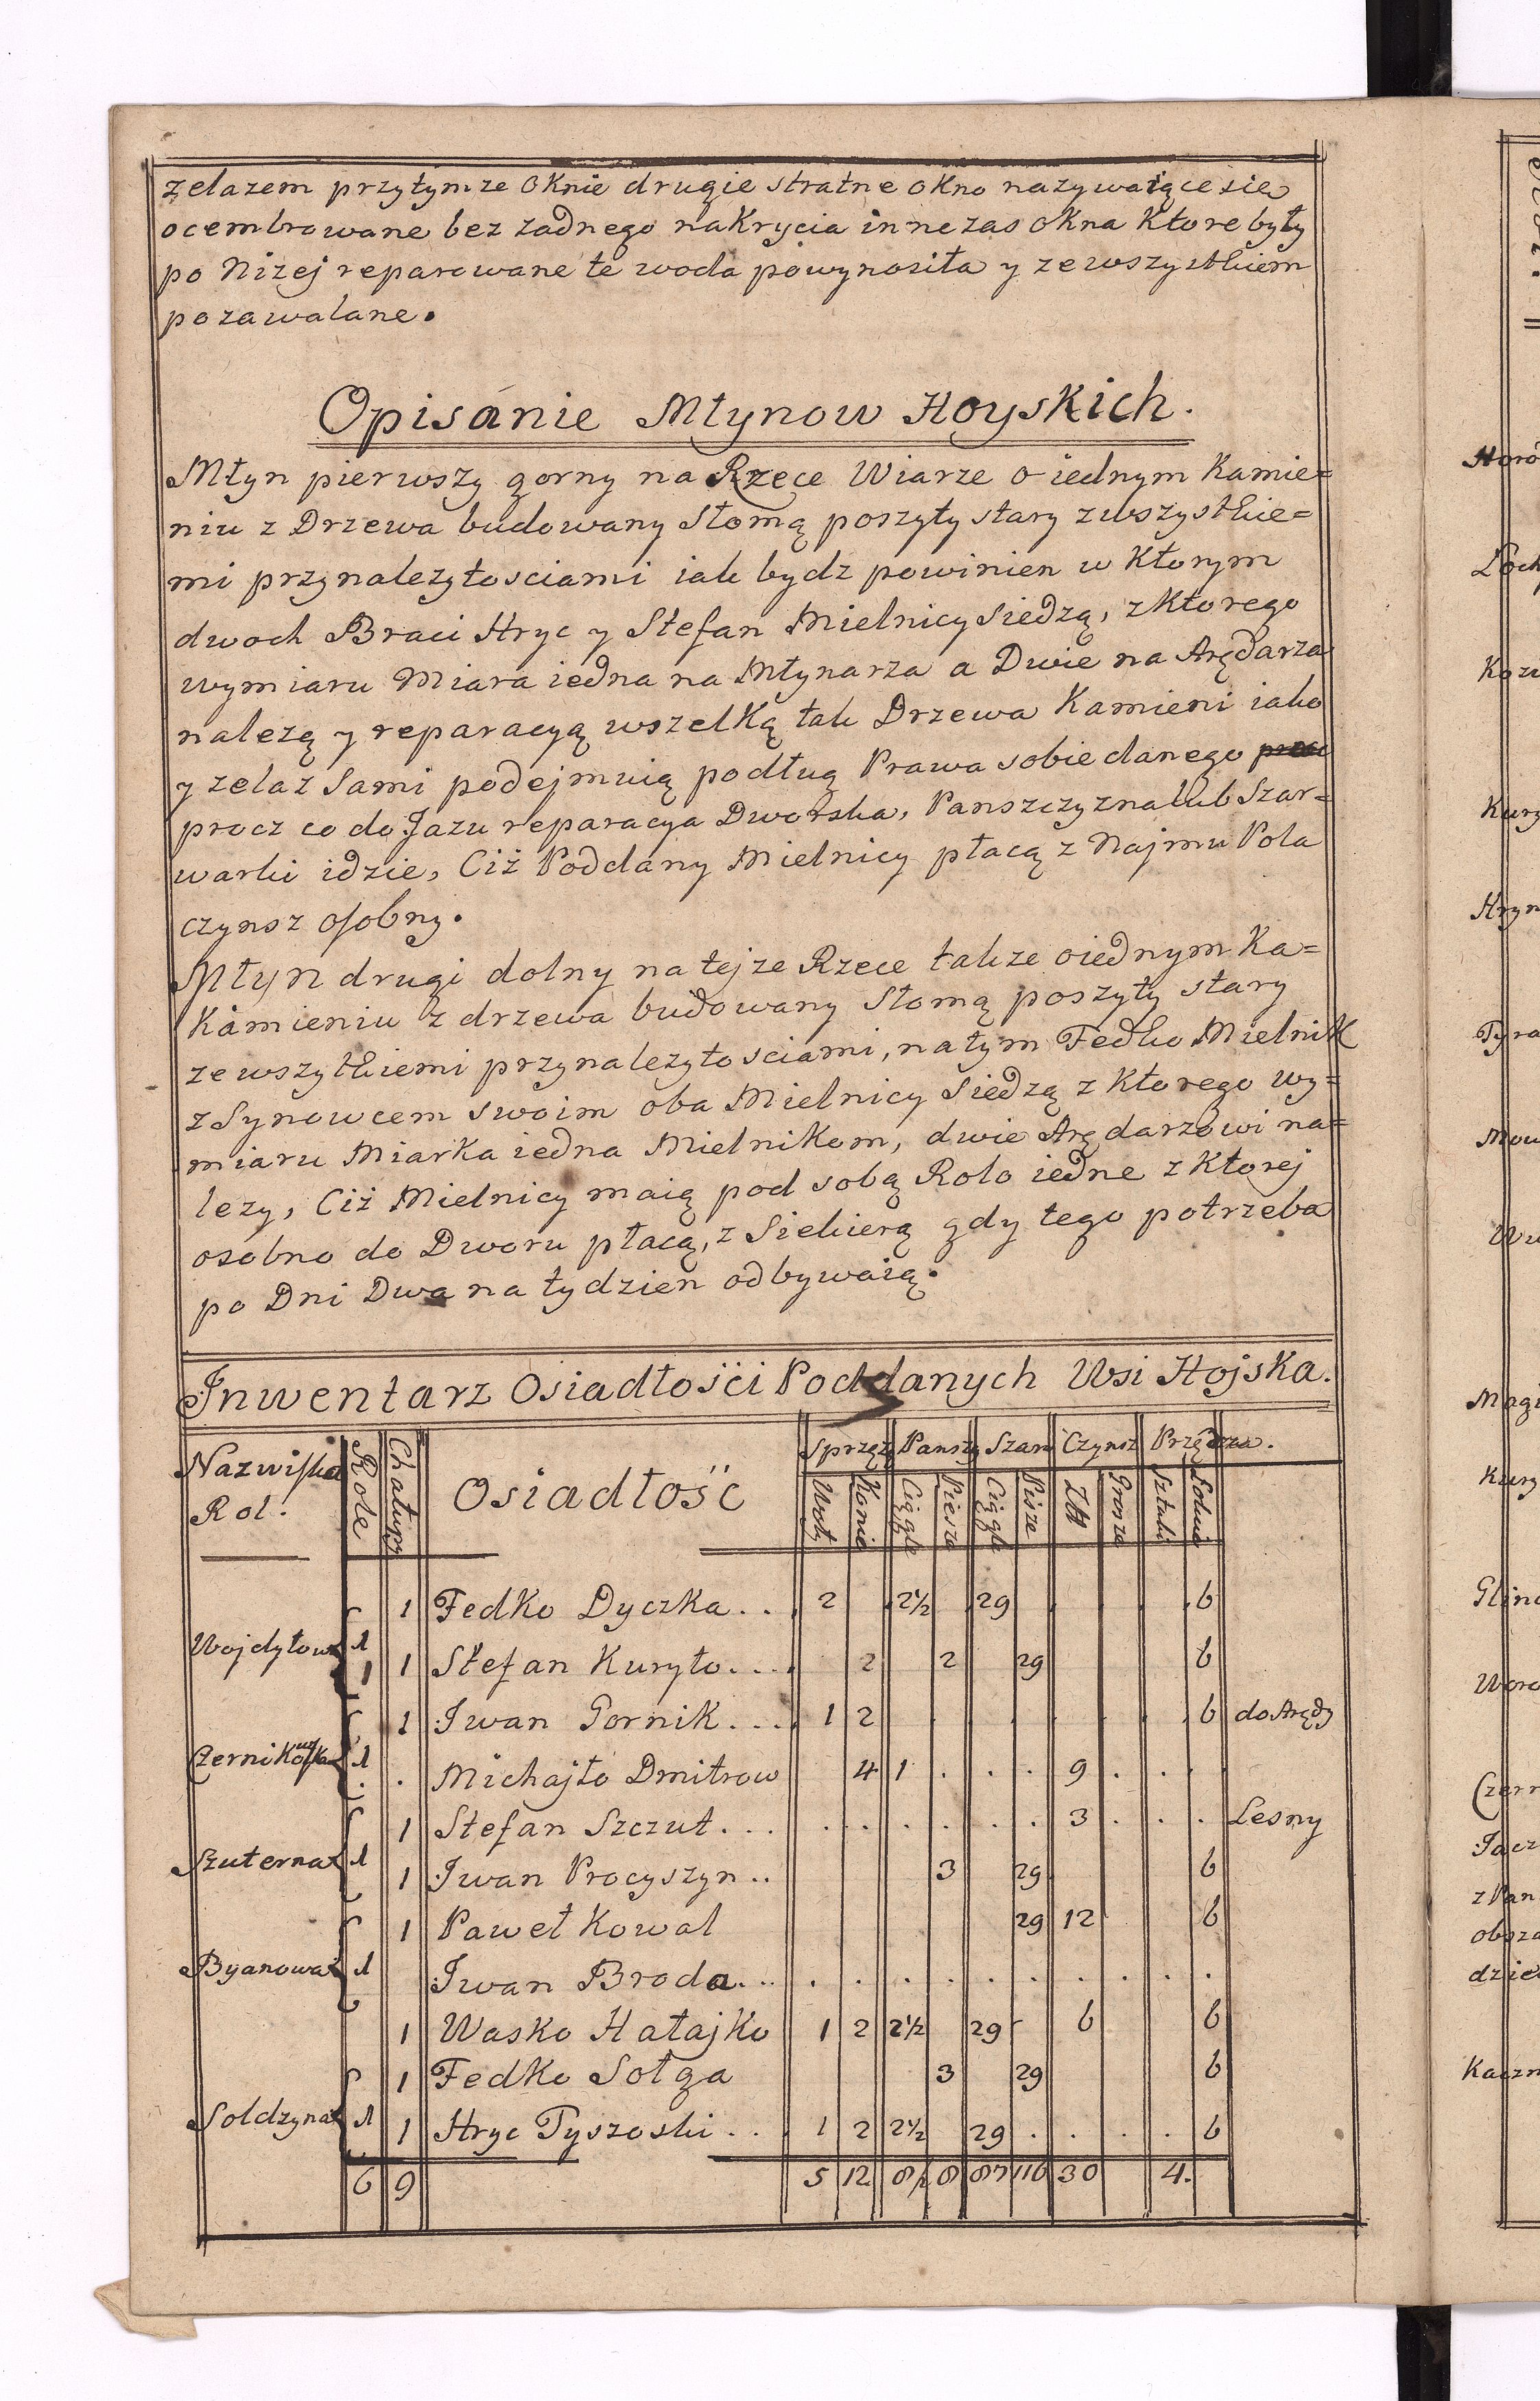 zelazem przytymze oknie drugie stratne okno nazywaiące się
ocembrowane bez zadnego nakrycia inne zas okna ktore były
po Nizej reparowane te woda powynosiła y ze wszystkiem
pozawalane.
Opisanie Młynow Hoyskich.
Młyn pierwszy gorny na Rzęce Wiarze o iednym Kamie=
niu z Drzewa budowany Słomą poszyty stary z wszystkie=
mi przynalezytosciami iak bydz powinien w Ktorym
dwoch Braci Hryc y Stefan Mielnicy siedzą, z Ktorego
wymiaru Miara iedna na Młynarza a Dwie na Arędarza
nalezą y reparacyą wszelką tak Drzewa Kamieni iako
y zelaz Sami podejmuią podług Prawa sobie danego
procz co do Jazu reparacya Dworska, Panszczyzna lub Szar=
warki idzie, Ciż Poddany Mielnicy płacą z Najmu Pola
czynsz osobny.
Młyn drugi dolny na tejze Rzece takze o iednym Ka=
Kamieniu z drzewa budowany Słomą poszyty stary
ze wszytkiemi przynalezytosciami, na tym Fedko Mielnik
z Synowcem swoim oba Mielnicy Siedzą z Ktorego wy=
miaru Miarka iedna Mielnikom, dwie Arędarzowi na=
lezy, Ciż Mielnicy maią pod sobą Rolo iedne z Ktorej
osobno do Dworu płacą, z Siekierą gdy tego potrzeba
po Dni Dwa na tydzien odbywaią.
Inwentarz Osiadłośći Poddanych Wsi Hojska.
Nazwiska Rol. Role Chałupy Osiadłość Sprzęży Pansz Szarw Czynsz Przędza.
Woły Konie Ciągłe Piesze Ciągłe Pisze Złł Grosze Sztuki Łokcie
1 Fedko Dyczka . . 2 2½ 29 6
Wojdyłowa 1 1 1 Stefan Kuryło . . . 2 2 29 6
1 Iwan Gornik . . . 1 2 6 do Arędy
Czernikowska 1 . . Michajło Dmitrow 4 1 . . . 9 . . .
1 Stefan Szczut . . . . . . . . . . 3 . . . Lesny
Szuterna 1 1 Iwan Procyszyn . . 3 29 6
1 Paweł Kowal 29 12 6
Byanowa 1 Iwan Broda . . . . . . . . . . . . .
1 Wasko Hałajko 1 2 2½ 29 6 6
1 Fedko Sołga 3 29 6
Soldzyna 1 1 Hryc Tyszoski . . 1 2 2½ 29 . . . . 6
6 9 5 12 8½ 8 87 116 30 4.